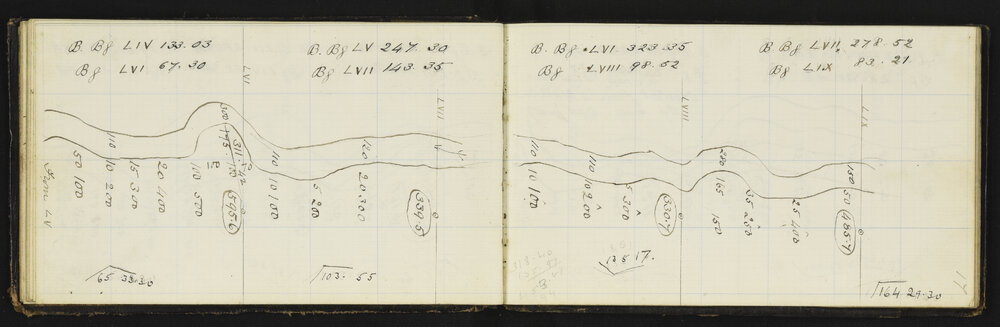 B. Bg LIV 133.03
Bg LVI 67.30
B. Bg LV 247.30
Bg LVII 143.35
LVI
LVII
From LV
50 100
110
10 200
15 300
20 400
10 500
300
595.6
110
10 100
5 200
120
20.300
339.5
65
103. 55
B. Bg LVI 323.35
Bg LVIII 98.52
B Bg LVII 278.52
Bg LIX 83.21
LVIII
LIX
110
10 100
110
10 200
5 300
330.7
250
165
150
35 250
25 400
150
50
485.7
164 29.30